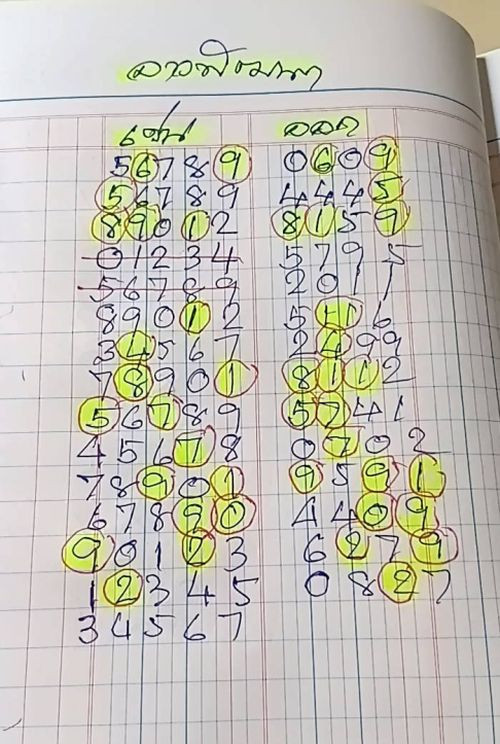 ลาวพัฒนา
เช่น ออก
5 6 7 8 9 0 6 0 9
5 6 7 8 9 4 4 4 5
8 9 0 1 2 8 1 5 9
0 1 2 3 4 5 7 9 5
5 6 7 8 9 2 0 1 1
8 9 0 1 2 5 1 1 6
3 4 5 6 7 2 4 9 9
7 8 9 0 1 8 1 1 2
5 6 7 8 9 5 7 4 1
4 5 6 7 8 0 7 0 2
7 8 9 0 1 9 5 9 1
6 7 8 9 0 4 4 0 9
9 0 1 2 3 6 2 7 9
1 2 3 4 5 0 8 2 7
3 4 5 6 7